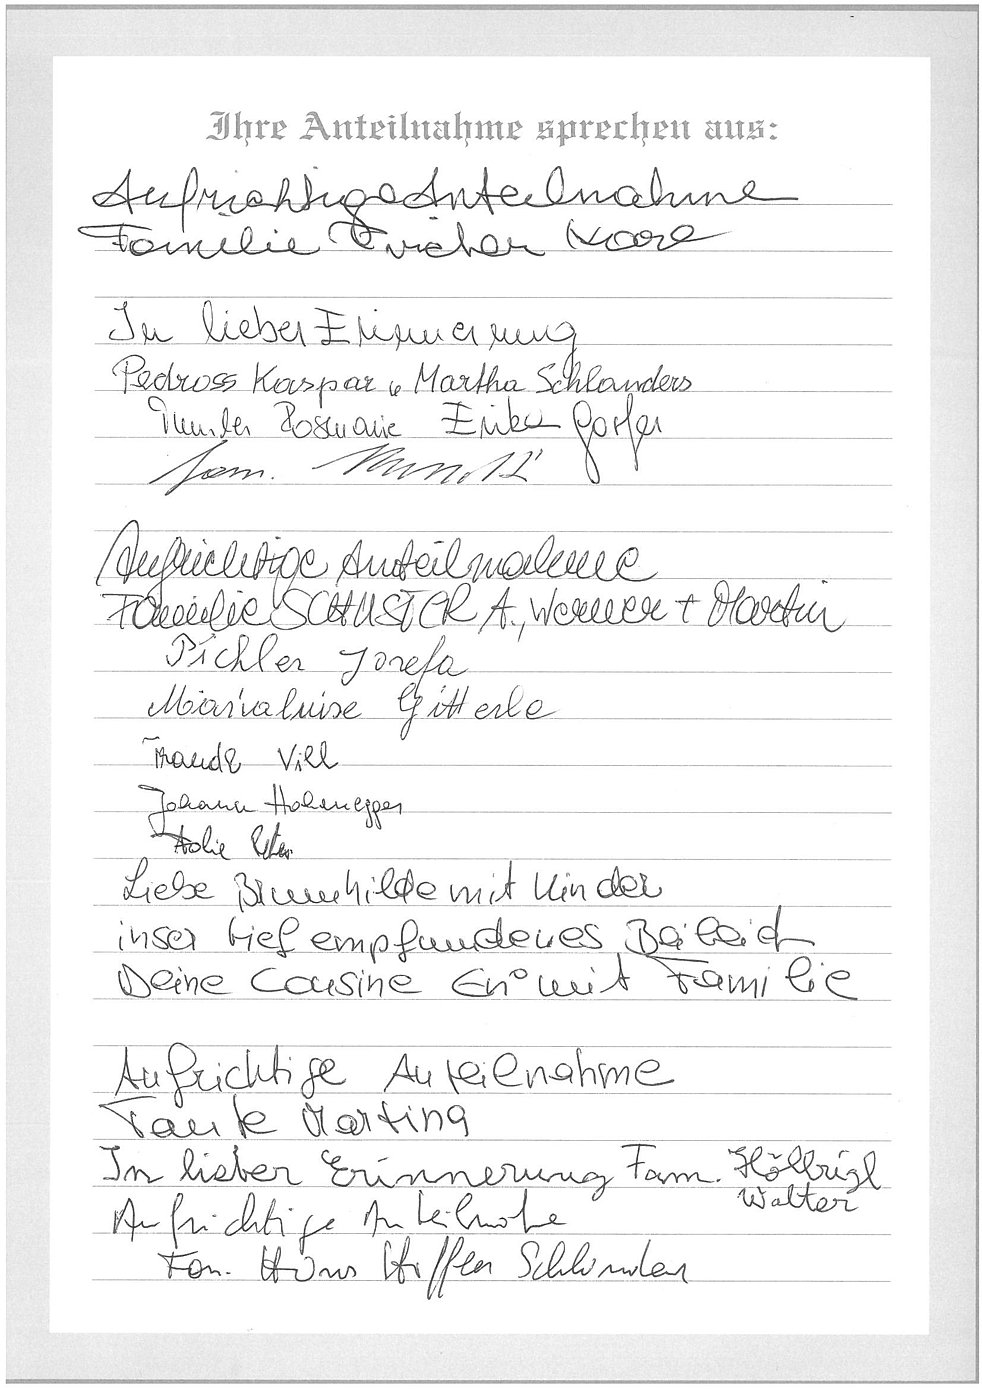 Ihre Anteilnahme sprechen aus:
Aufrichtige Anteilnahme
Familie Pircher Karl
In lieber Erinnerung
Pedross Kaspar u Martha Schlanders
Rosmarie Erika Gorfer
Fam.
Aufrichtige Anteilnahme
Familie SCHUSTER A., Werner + Martin
Pichler Josefa
Marialuise Gitterle
Traudl Vill
Johann Hohenegger
Liebe Brunhilde mit Kinder
unser tief empfundenes Beileid
Deine Cousine mit Familie
Aufrichtige Anteilnahme
Tante Martina
In lieber Erinnerung Fam. Höllrigl
Walter
Aufrichtige Anteilnahme
Fam. Hans Steffen Schlanders